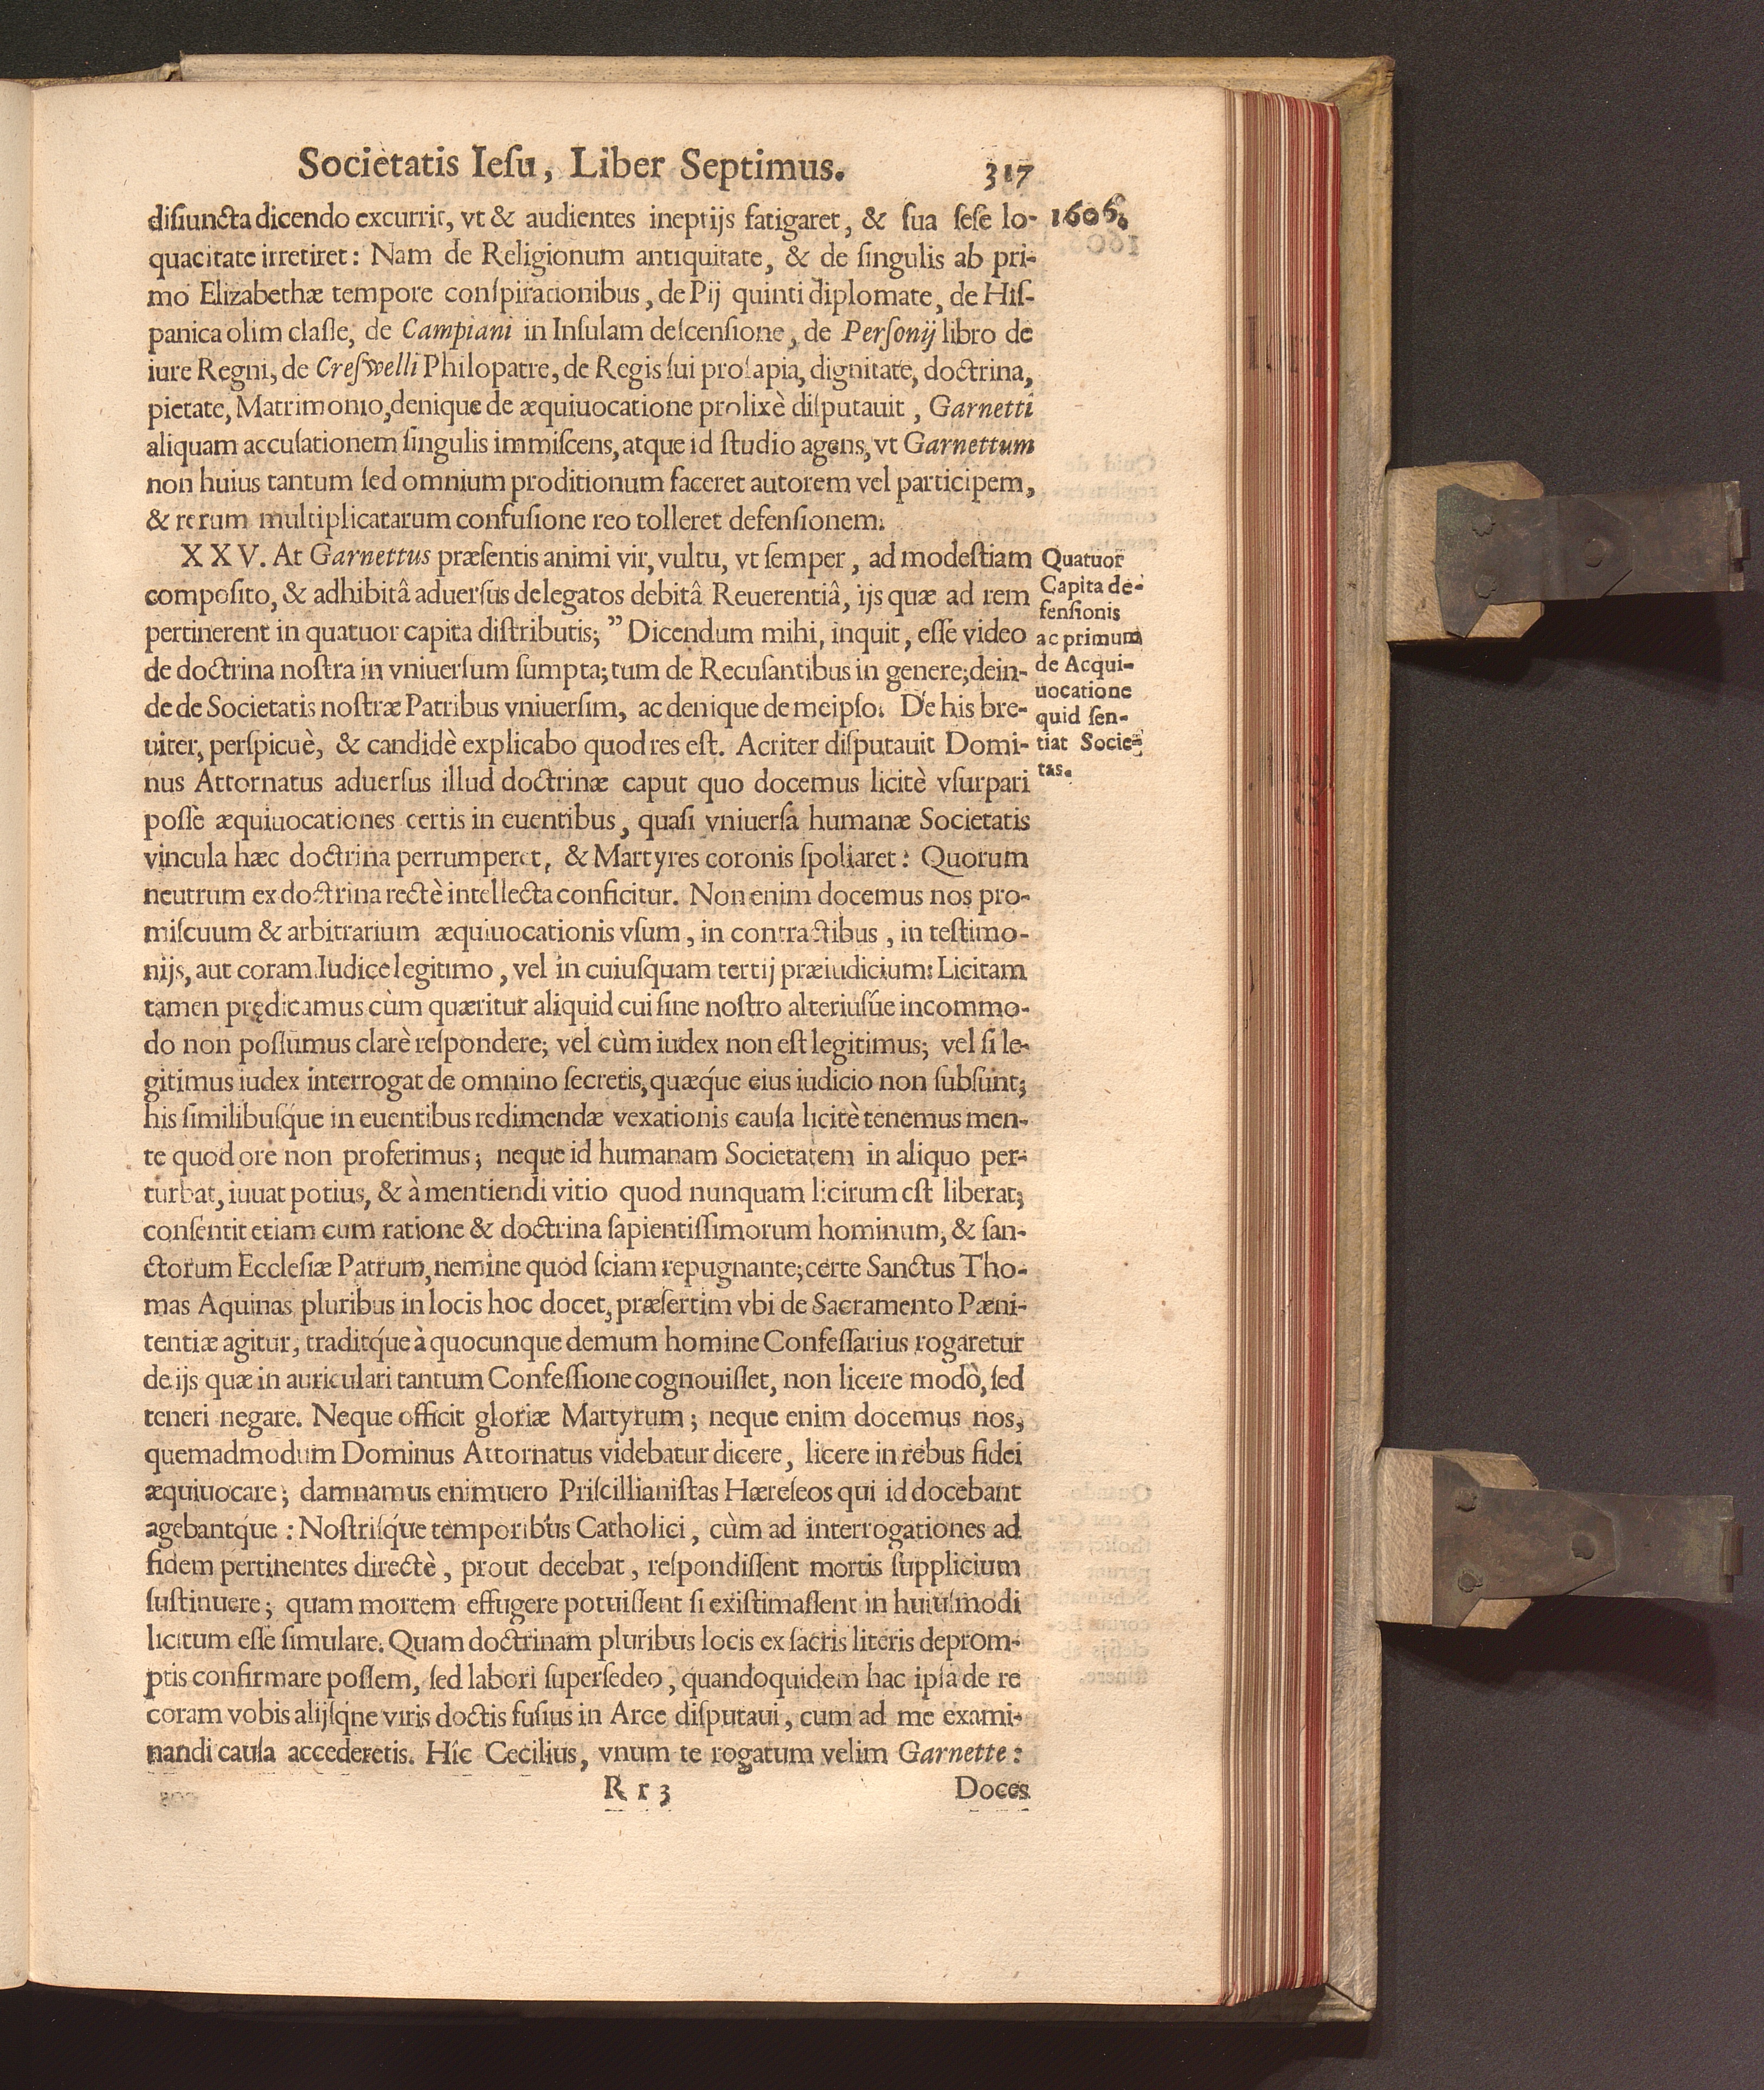 Societatis Iesu, Liber Septimus. 317
disiuncta dicendo excurrit, vt & audientes ineptijs fatigaret, & sua sese lo-
1606.
quacitate irretiret: Nam de Religionum antiquitate, & de singulis ab pri-
mo Elizabethæ tempore conspirationibus, de Pij quinti diplomate, de His-
panica olim classe, de Campiani in Insulam descensione, de Personij libro de
iure Regni, de Creswelli Philopatre, de Regis sui prosapia, dignitate, doctrina,
pietate, Matrimonio, denique de æquiuocatione prolixè disputauit, Garnetti
aliquam accusationem singulis immiscens, atque id studio agens, vt Garnettum
non huius tantum sed omnium proditionum faceret autorem vel participem,
& rerum multiplicatarum confusione reo tolleret defensionem.
XXV. At Garnettus præsentis animi vir, vultu, vt semper, ad modestiam
composito, & adhibitâ aduersus delegatos debitâ Reuerentiâ, ijs quæ ad rem
pertinerent in quatuor capita distributis; ” Dicendum mihi, inquit, esse video
de doctrina nostra in vniuersum sumpta; tum de Recusantibus in genere; dein-
de de Societatis nostræ Patribus vniuersim, ac denique de meipso. De his bre-
uiter, perspicuè, & candidè explicabo quod res est. Acriter disputauit Domi-
nus Attornatus aduersus illud doctrinæ caput quo docemus licitè vsurpari
posse æquiuocationes certis in euentibus, quasi vniuersa humanæ Societatis
vincula hæc doctrina perrumperet, & Martyres coronis spoliaret: Quorum
neutrum ex doctrina rectè intellecta conficitur. Non enim docemus nos pro-
miscuum & arbitrarium æquiuocationis vsum, in contractibus, in testimo-
nijs, aut coram Iudice legitimo, vel in cuiusquam tertij præiudicium: Licitam
tamen prędicamus cùm quæritur aliquid cui sine nostro alteriusúe incommo-
do non possumus clarè respondere; vel cùm iudex non est legitimus; vel si le-
gitimus iudex interrogat de omnino secretis, quæq́ue eius iudicio non subsunt;
his similibusq́ue in euentibus redimendæ vexationis causa licitè tenemus men-
te quod ore non proferimus; neque id humanam Societatem in aliquo per-
turbat, iuuat potius, & à mentiendi vitio quod nunquam licirum est liberat;
consentit etiam cum ratione & doctrina sapientissimorum hominum, & san-
ctorum Ecclesiæ Patrum, nemine quod sciam repugnante; certe Sanctus Tho-
mas Aquinas pluribus in locis hoc docet, præsertim vbi de Sacramento Pæni-
tentiæ agitur, traditq́ue à quocunque demum homine Confessarius rogaretur
de ijs quæ in auriculari tantum Confessione cognouisset, non licere modò, sed
teneri negare. Neque officit gloriæ Martyrum; neque enim docemus nos,
quemadmodum Dominus Attornatus videbatur dicere, licere in rebus fidei
æquiuocare; damnamus enimuero Priscillianistas Hæreseos qui id docebant
agebantq́ue: Nostrisq́ue temporibus Catholici, cùm ad interrogationes ad
fidem pertinentes directè, prout decebat, respondissent mortis supplicium
sustinuere; quam mortem effugere potuissent si existimassent in huiusmodi
licitum esse simulare. Quam doctrinam pluribus locis ex sacris literis deprom-
ptis confirmare possem, sed labori supersedeo, quandoquidem hac ipsa de re
coram vobis alijsq́ne viris doctis fusius in Arce disputaui, cum ad me exami-
nandi causa accederetis. Hîc Cecilius, vnum te rogatum velim Garnette:
Rr3 Doces
Quatuor
Capita de-
fensionis
ac primum
de Acqui-
uocatione
quid sen-
tiat Socie-
tas.